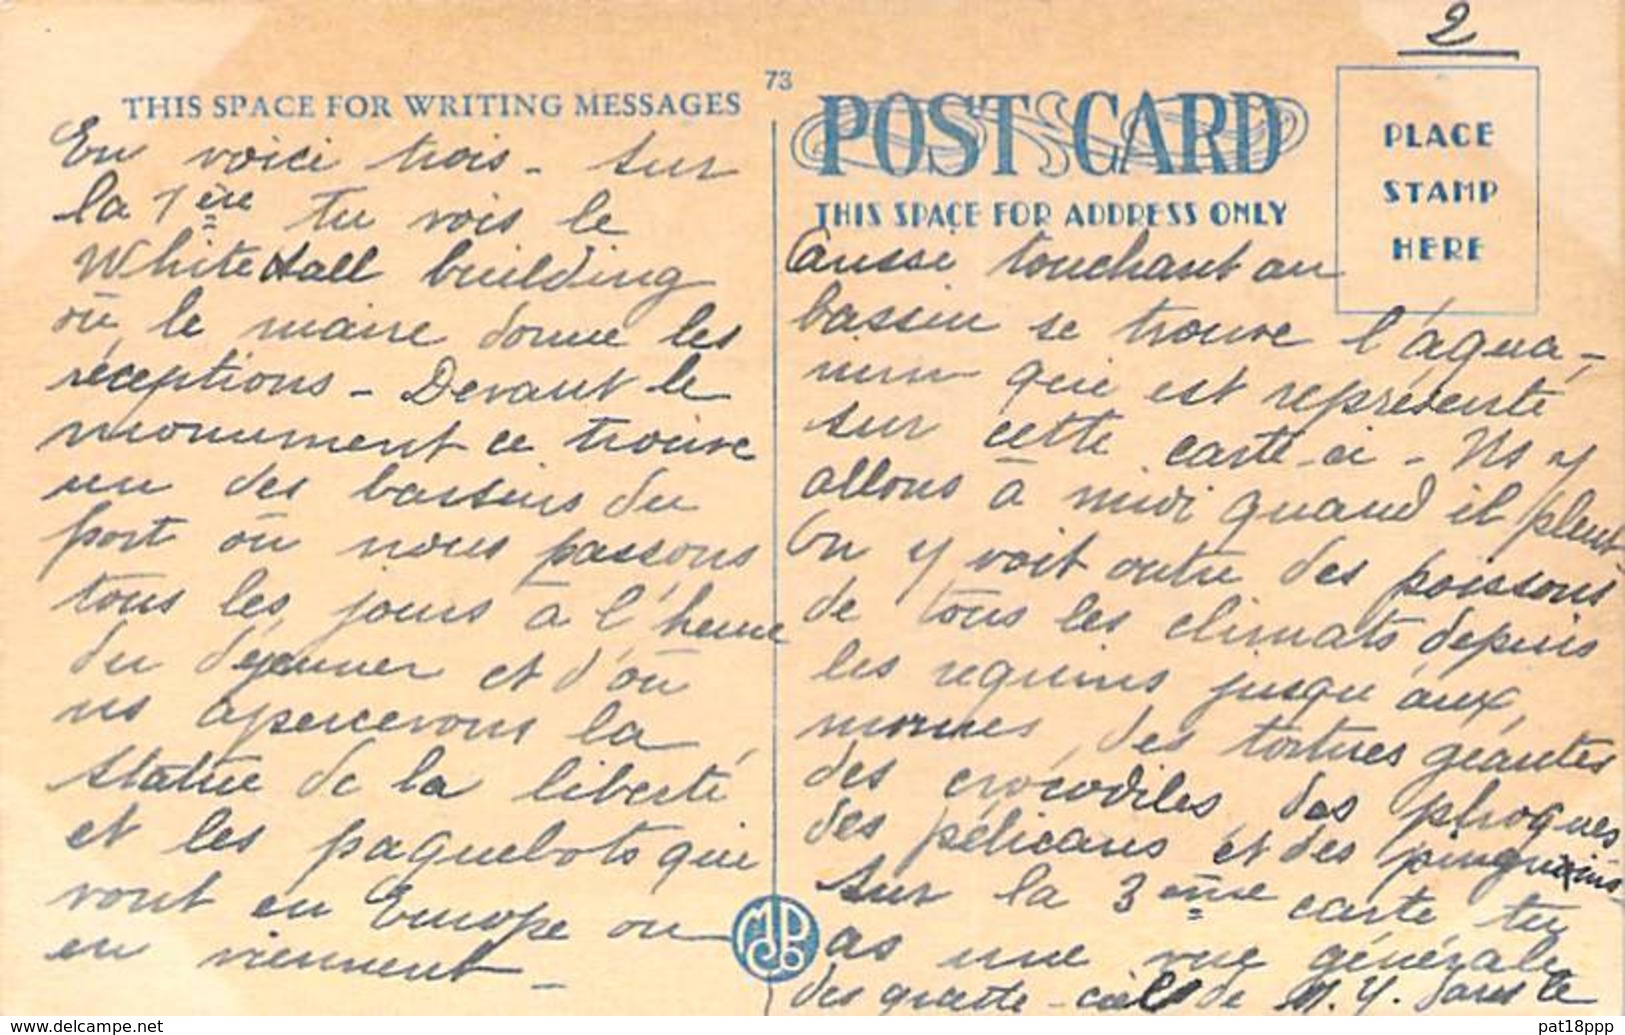 2
73
THIS SPACE FOR WRITING MESSAGES
En voici trois - sur
la 1ère tu vois le
White Hall building
où le maire donne les
réceptions - Devant le
monument ce trouve
un des bassins du
port où nous passons
tous les jours à l'heure
du déjeuner et d'où
ns apercevons la
statue de la liberté
et les paquebots qui
vont en Europe ou
en viennent -
POST CARD
THIS SPACE FOR ADDRESS ONLY
PLACE
STAMP
HERE
Aussi touchant au
bassin se trouve l'aqua-
rium qui est représenté
sur cette carte-ci - Ns y
allons à midi quand il pleut
On y voit outre des poissons
de tous les climats depuis
les requins jusqu'aux
morues, des tortues géantes
des crocodiles des phoques
des pélicans et des pinguins
sur la 3ème carte tu
as une vue générale
des gratte-ciels de N.Y. dans le
pat18ppp
delcampe.net